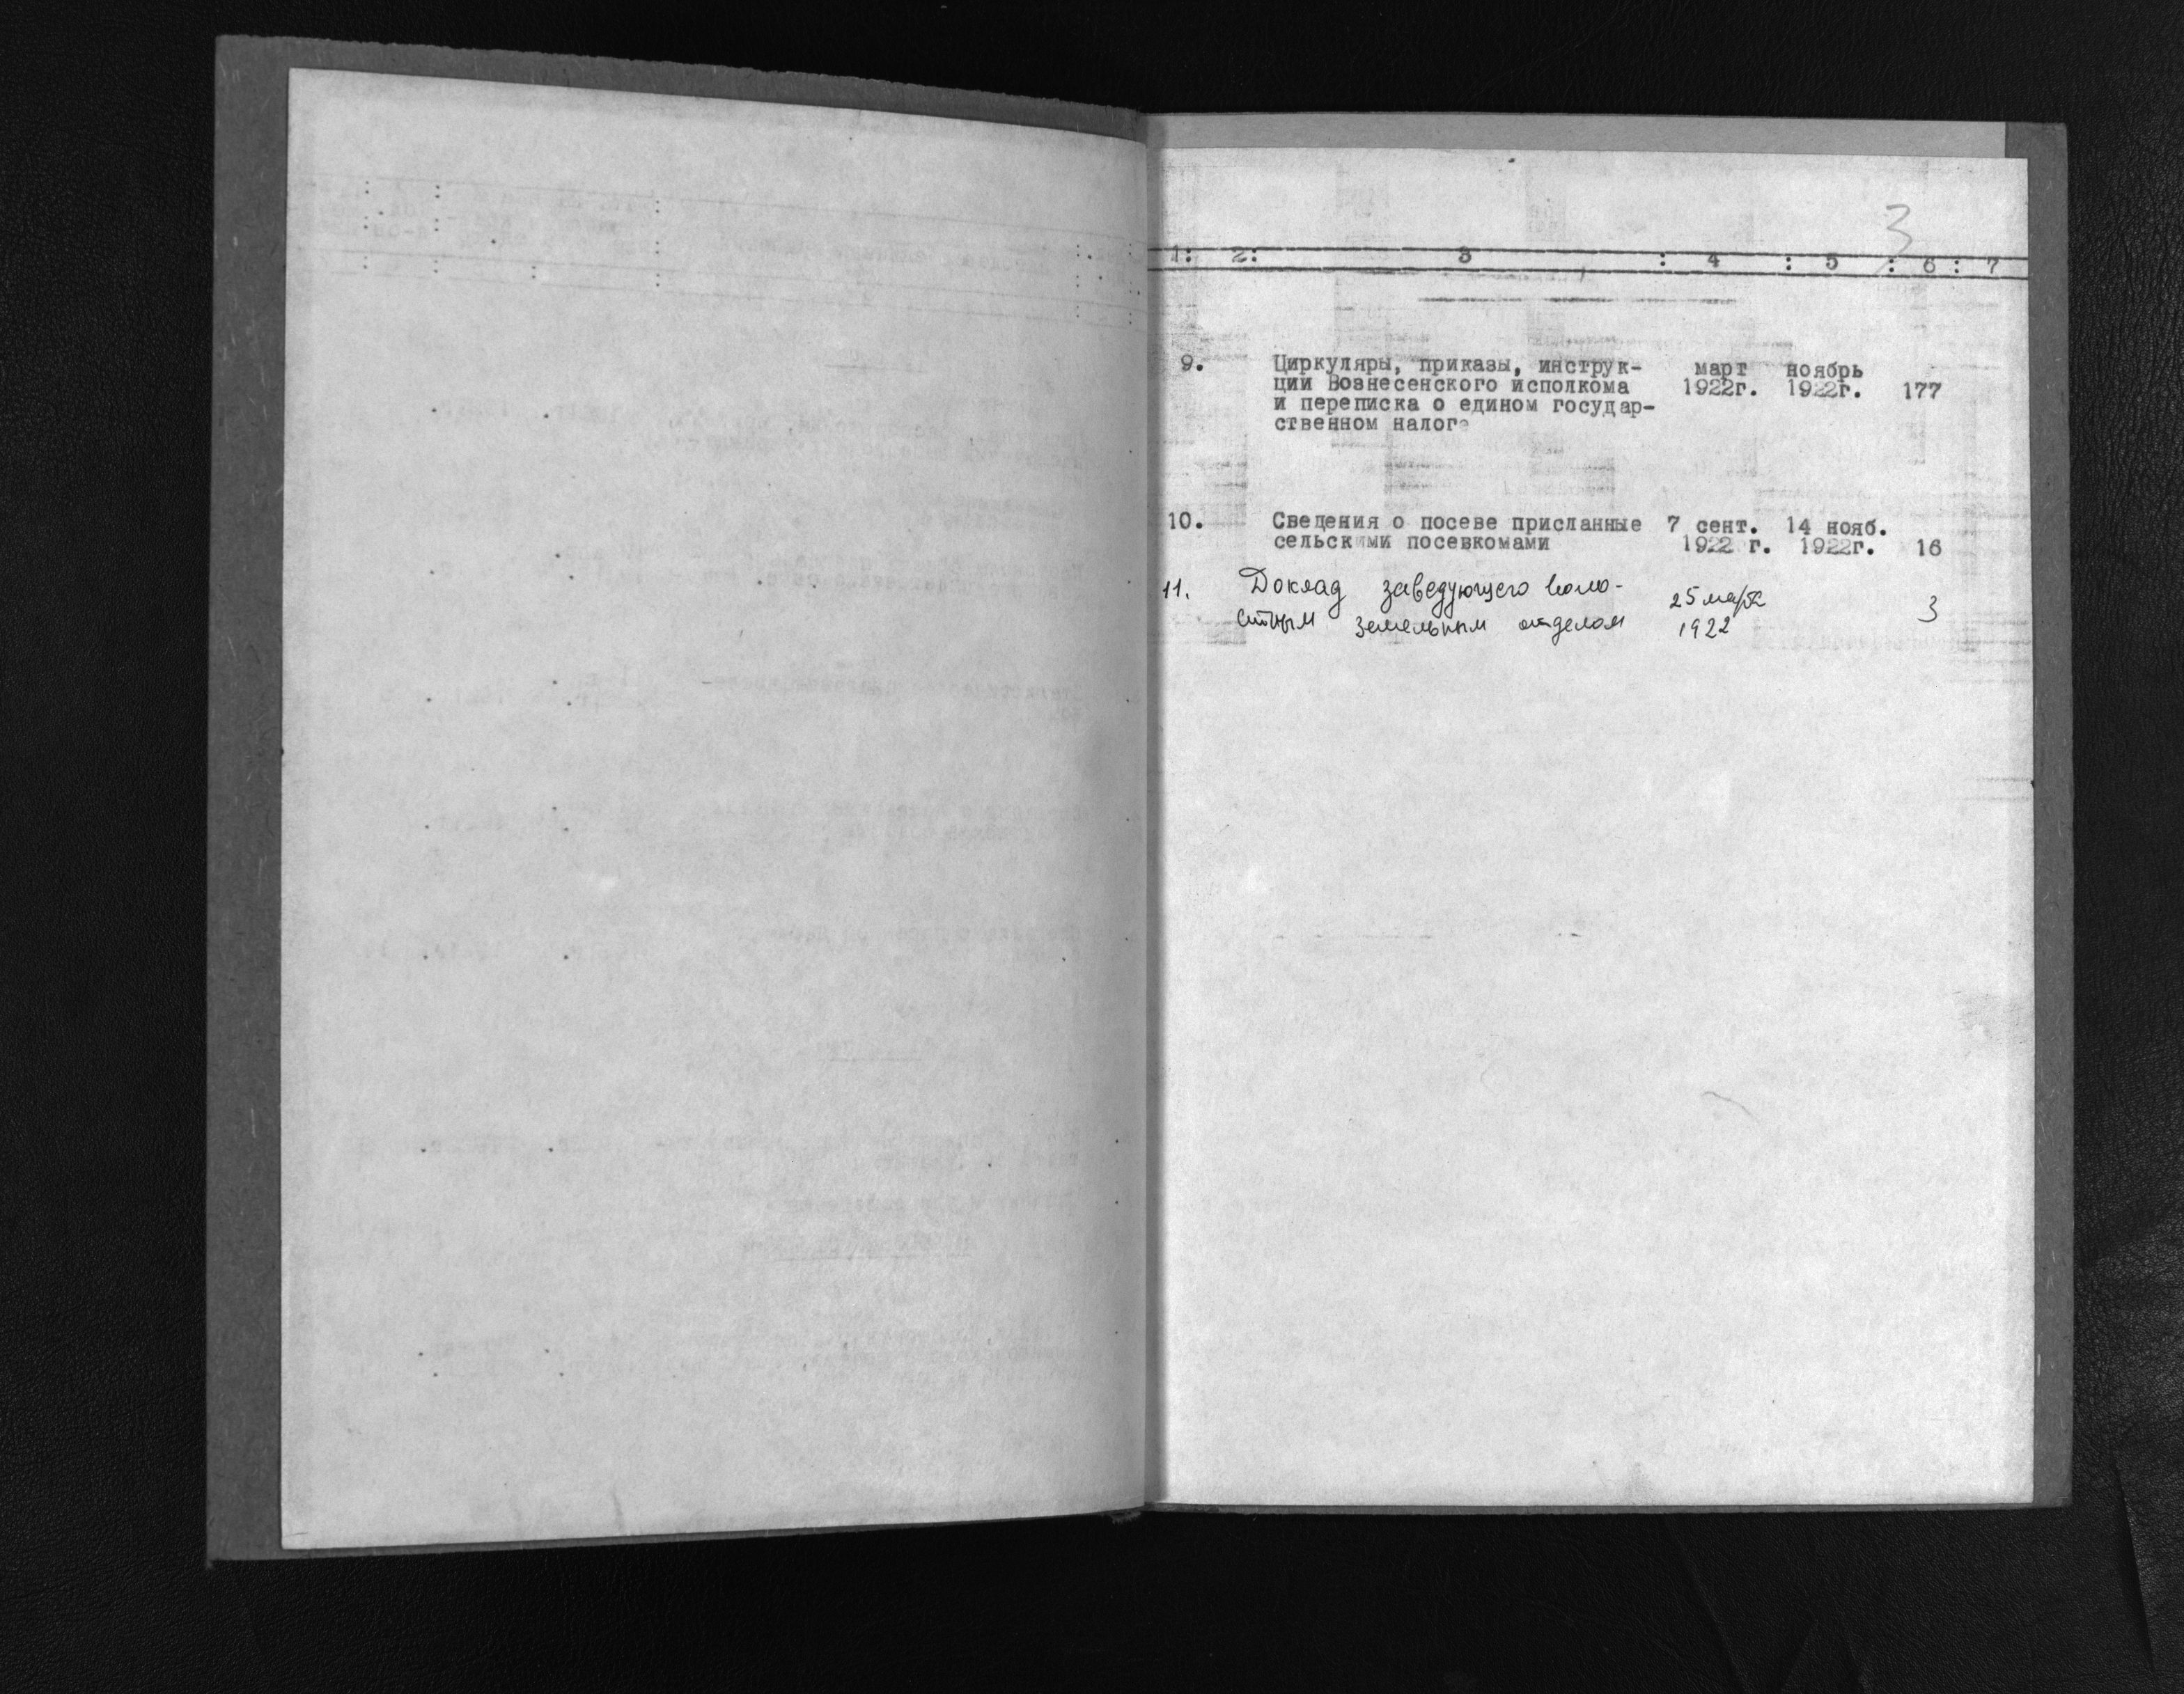 3
1: 2: 3 : 4 : 5 : 6 : 7
9. Циркуляры, приказы, инструк- март ноябрь
ции Вознесенского исполкома 1922г. 1922г. 177
и переписка о едином государ-
ственном налоге
10. Сведения о посеве присланные 7 сент. 14 нояб.
сельскими посевкомами 1922 г. 1922г. 16
11. Доклад заведующего воло- 25 марта 3
стным земельным отделом 1922